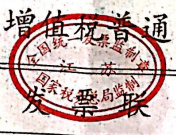 增值税普通
全国统一发票监制章
江苏
国家税务局监制
发票联